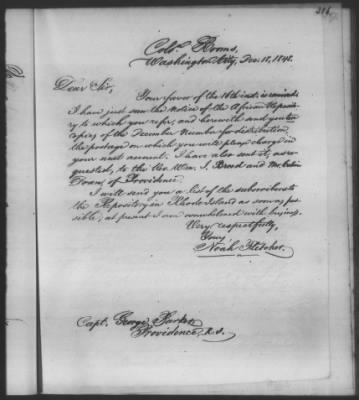 Col. Rooms,
Washington City, Dec. 18, 1848.
Dear Sir,
Your favor of the 16th inst. is received.
I have just seen the Notice of the African Repository
to which you refer, and herewith send you ten
copies of the December Number for distribution,
the postage on which you will please charge in
your next account. I have also sent it, as re-
quested, to the Rev. Wm. J. Breed and Mr.
Doan, of Providence.
I will send you a list of the subscribers to
the Repository in Rhode Island as soon as pos-
sible; at present I am overwhelmed with business.
Very respectfully,
Yours
Noah Fletcher.
Capt. George Parker
Providence, R.I.